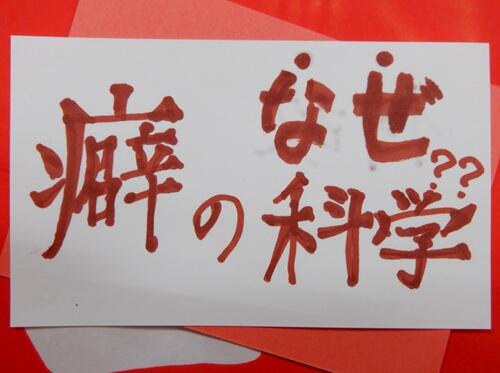 なぜ??
癖の科学